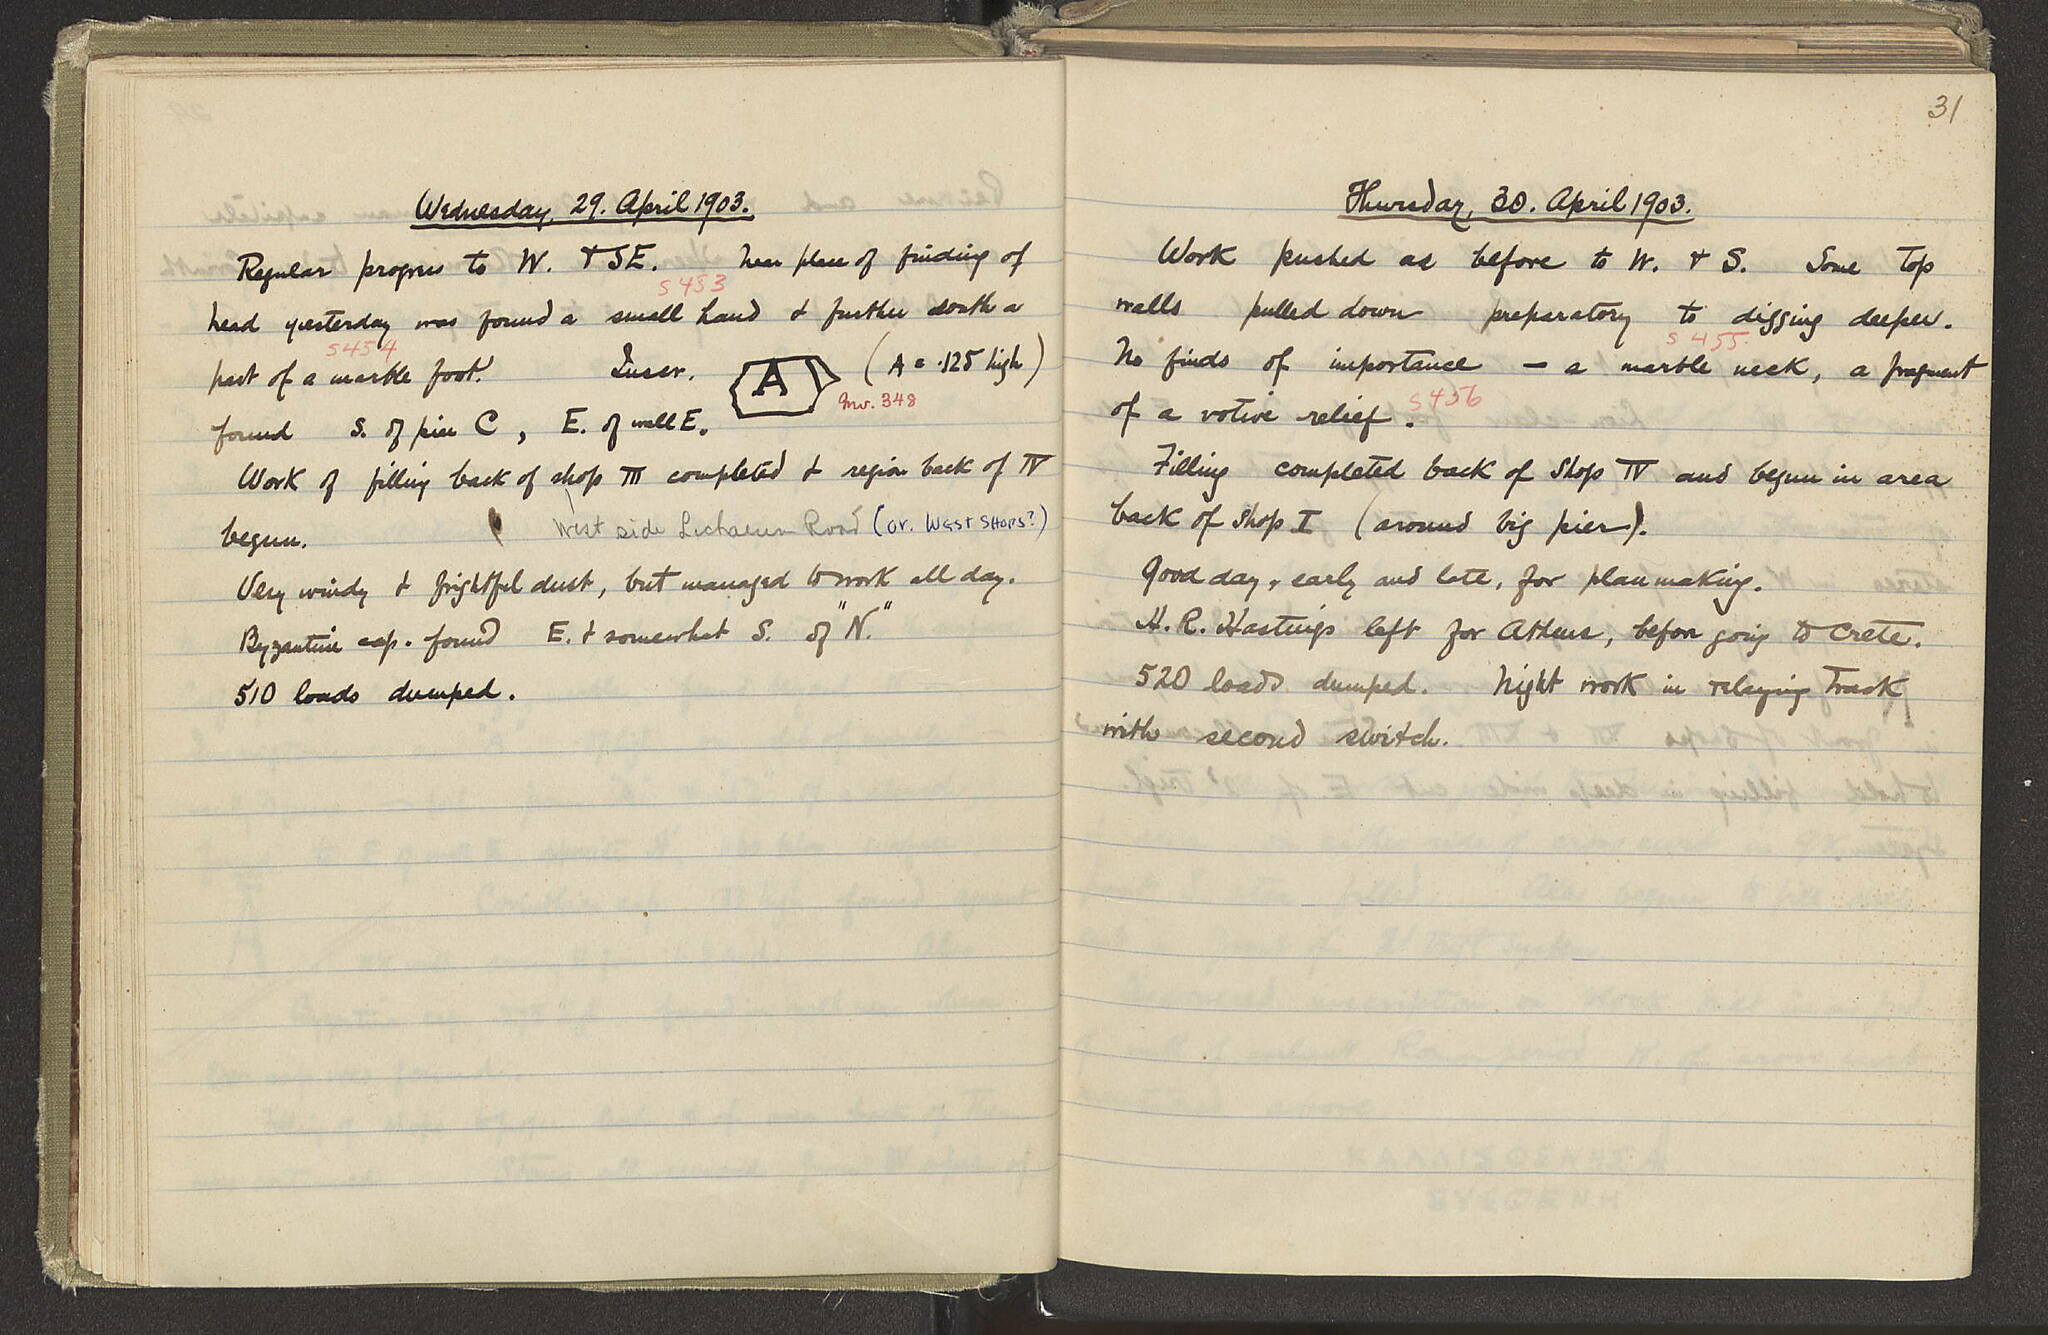 Wednesday, 29. April 1903.
Regular progress to W. & SE. Near place of finding of
S 453
head yesterday was found a small hand & further south a
S 454
part of a marble foot. Inscr. A (A = .125 high)
Inv. 348
found S. of pier C, E. of wall E.
Work of filling back of shop III completed & region back of IV
begun. West side Lechaeum Road (or. WEST SHOPS?)
Very windy & frightful dust, but managed to work all day.
Byzantine cap. found E. & somewhat S. of "N."
510 loads dumped.
31
Thursday, 30. April 1903.
Work pushed as before to W. & S. Some top
walls pulled down preparatory to digging deeper.
S 455.
No finds of importance – a marble neck, a fragment
of a votive relief. S 456
Filling completed back of Shop IV and begun in area
back of Shop I (around big pier).
Good day, early and late, for plan making.
H. R. Hastings left for Athens, before going to Crete.
520 loads dumped. Night work in relaying track
with second switch.